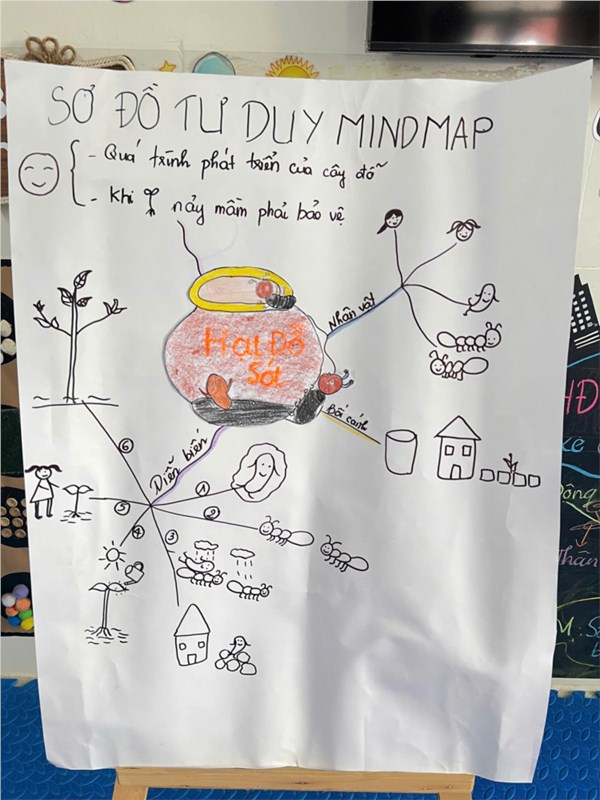 SƠ ĐỒ TƯ DUY MINDMAP
- Quá trình phát triển của cây đỗ
- Khi nảy mầm phải bảo vệ
Hạt Đỗ
Sót
Nhân vật
Bối cảnh
Diễn biến
1
2
3
4
5
6
HĐ